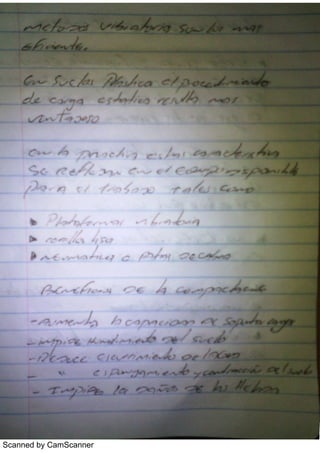 metodos vibratorio son los mas
eficientes.
en suelos plastica el procedimiento
de carga estatica resulta mas
ventajoso
en la practica estas caracteristica
se reflejan en el equipo disponible
para el trabajo tales como
Plataformas vibradora
rodillo lisa
neumatica o patas de cabra
Beneficios de la compactacion
- aumenta la capacidad de soportar carga
- impide hundimiento del suelo
- reduce escurrimiento de
- " esponjamiento y contraccion del suelo
- Impide los daños de las
Scanned by CamScanner